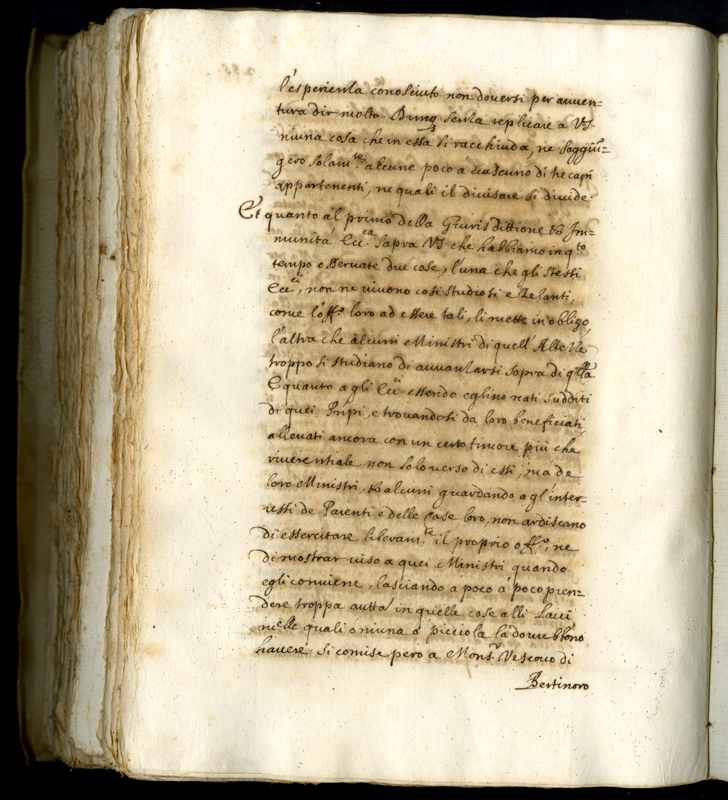 l'esperienza conosciuto non doversi per auuen=
tura dir molto. Dunq senza replicare a VS.
niuna cosa che in essa si racchiuda, ne soggiũ=
gerò solam.te alcune poco a ciascuno di tre capi
appartenenti, ne quali il divisare si divide.
Et quanto al primo della Giurisdittione et Im=
munità Ecc.ca Sapra VS che habbiamo in q.to
tempo osservate due cose, l'una che gli stessi
Ecc.ci, non ne vivono così studiosi e zelanti,
come l'off.o loro ad essere tali, li mette in obligo,
l'altra che alcuni Ministri di quell'Altezze
troppo si studiano di auuantarsi sopra di q.lla
E quanto a gli Ecc.ci essendo eglino nati sudditi
di quei Prĩpi, e trovandosi da loro beneficiati,
allevati ancora con un certo timore più che
riverentiale non solo verso di essi, ma de
loro Ministri, et alcuni guardando a gl'inter=
ressi de Parenti e delle Case loro, non ardiscano
di essercitare liberam.te il proprio off.o, ne
di mostrar viso a quei Ministri quando
egli conviene, lasciando a poco a poco pren=
dere troppa autta in quelle cose alli Laici
nelle quali o niuna o picciola la dovrebbono
havere. Si comise però a Mons.r Vescovo di
Bertinoro